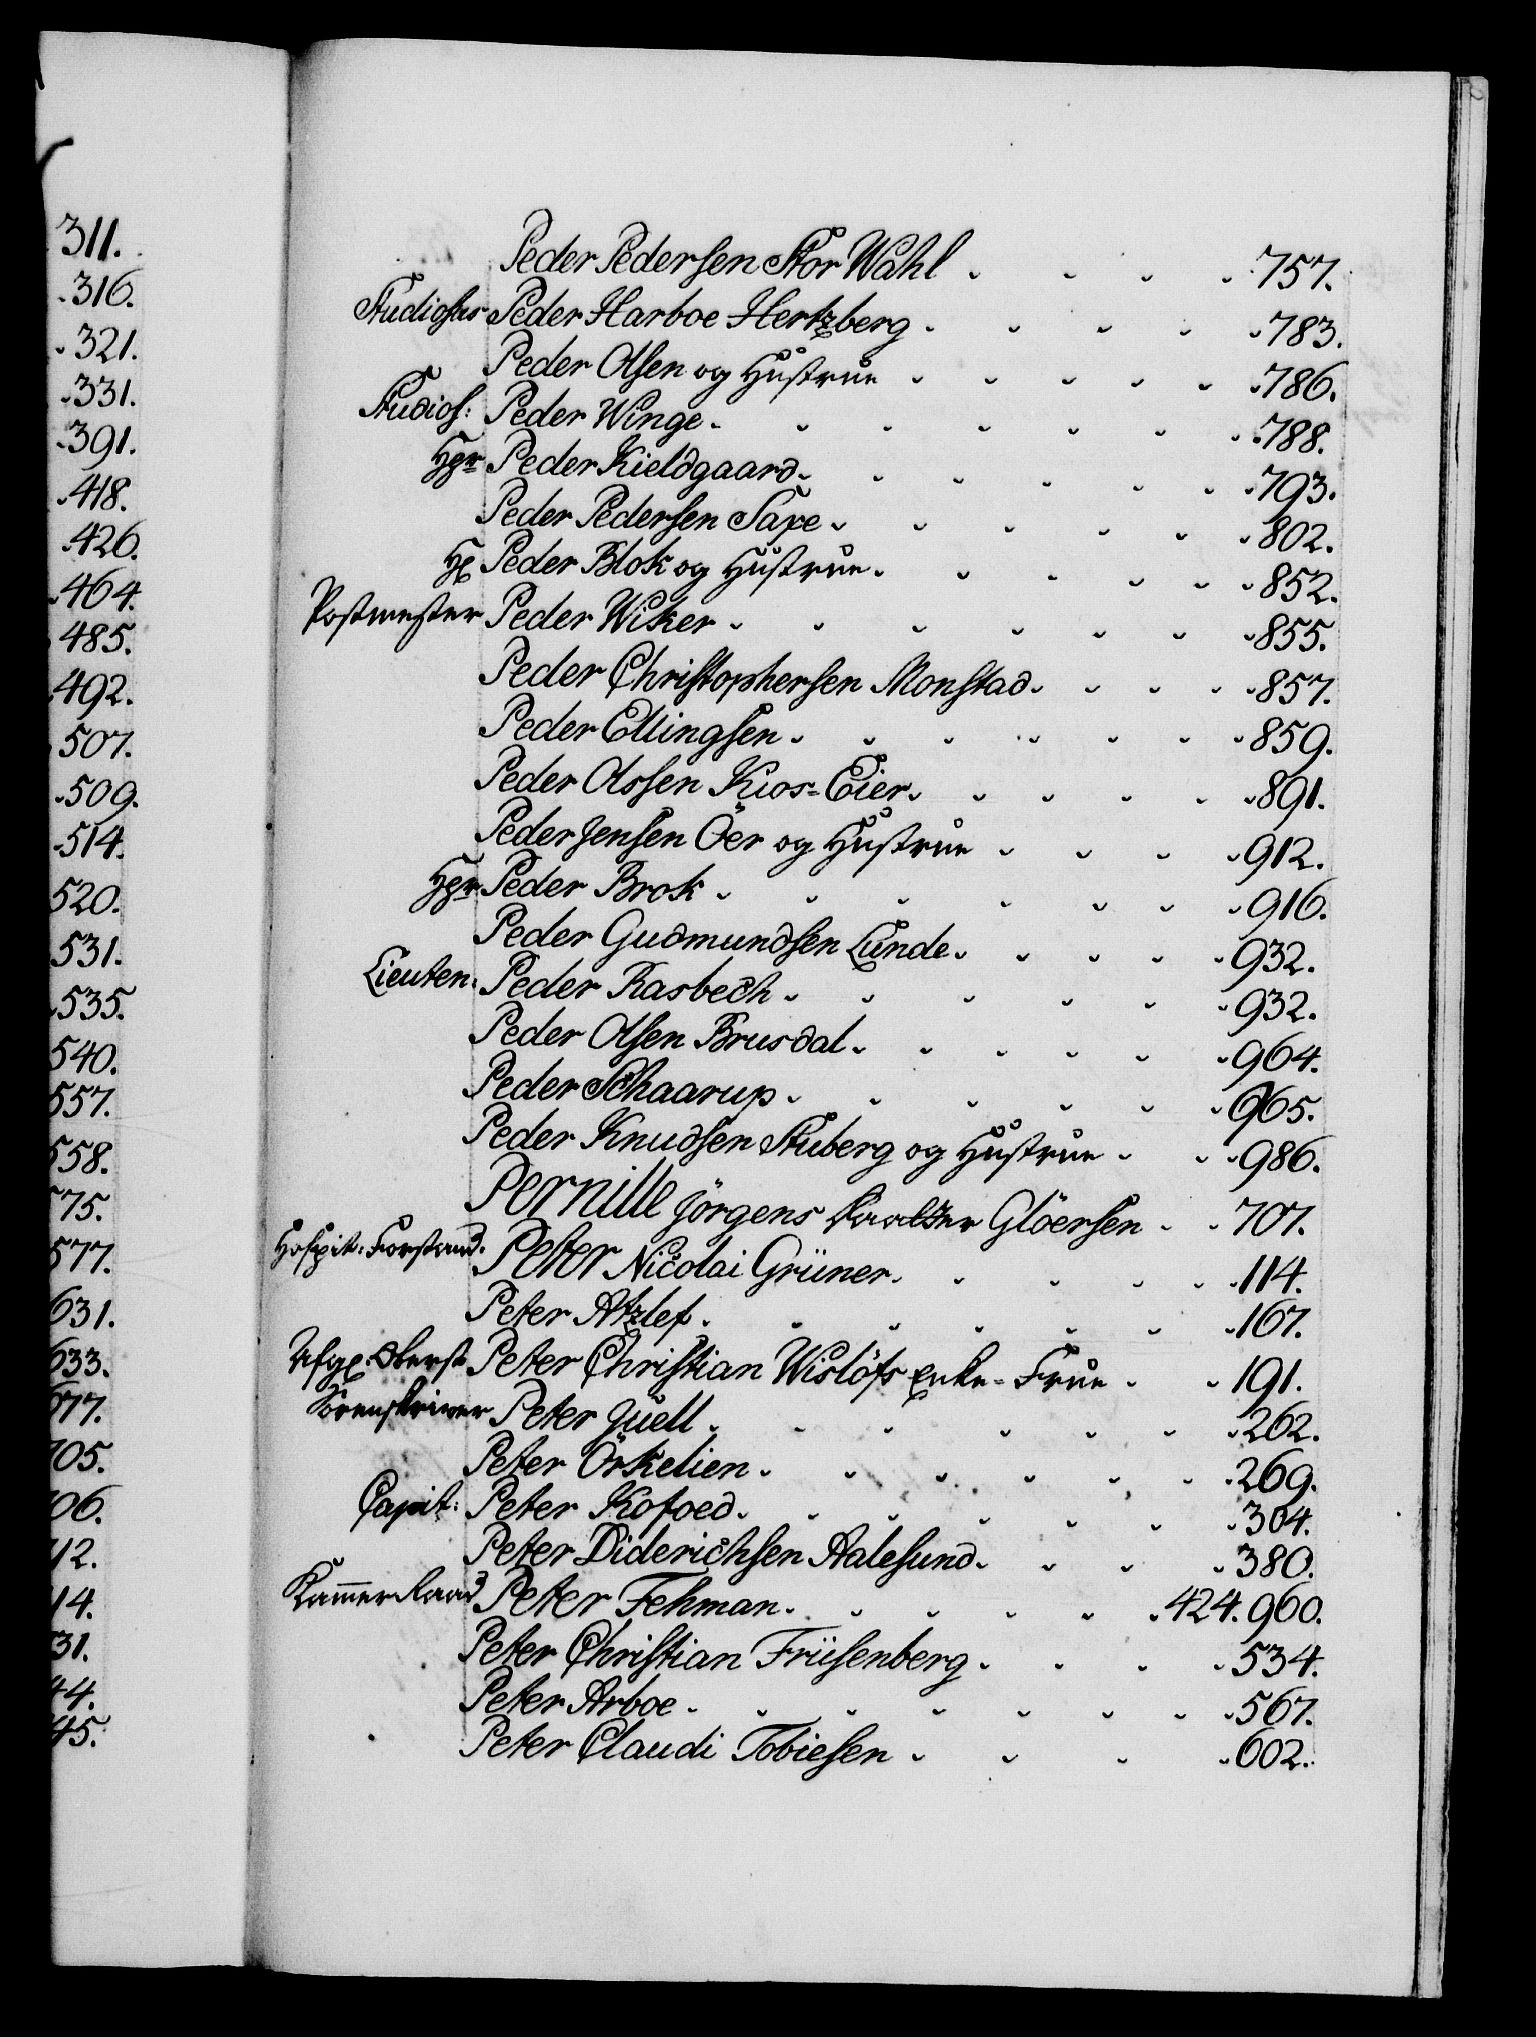 311.
316.
321.
331.
391.
418.
426.
464.
485.
492.
507.
509.
514.
520.
531.
535.
540.
557.
558.
75.
577.
631.
633.
677.
705.
06.
12.
14.
31.
44.
45.
Peder Pedersen Stor Wahl 757.
Studiosus Peder Harboe Hertzberg 783.
Peder Olsen og Hustrue 786.
Studios: Peder Winge 788.
Hgr Peder Kieldgaard 793.
Peder Pedersen Saxe 802.
Peder Blok og Hustrue 852.
Postmester Peder Wiker 855.
Peder Christophersen Monstad 857.
Peder Ellingsen 859.
Peder Olssen Kios-Eier 891.
Peder Jensen Öer og Hustrue 912.
Hgr Peder Brok 916.
Peder Gudmundsen Lunde 932.
Lieuten: Peder Rasbech 932.
Peder Olsen Brusdal 964.
Peder Schaarup 965.
Peder Knudsen Stuberg og Hustrue 986.
Pernille Jörgens Daatter Glöersen 707.
Hospit: Forstand. Peter Nicolai Grüner 114.
Peter Atzlef 167.
Afg: Oberst Peter Christian Wislöfs Enke-Frue 191.
Sorenskriver Peter Juell 262.
Peter Örkelien 269.
Capit: Peter Kofoed 304.
Peter Diderichsen Aalesund 380.
Kammer Raad Peter Fehman 424. 960.
Peter Christian Früsenberg 534.
Peter Arboe 567.
Peter Claudi Tobiesen 602.